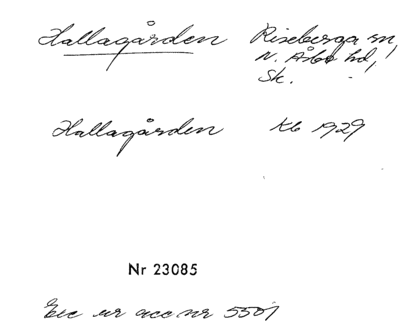 Hallagården Riseberga sn,
N. Åsbo hd,
Sk.
Hallagården Kb 1929
Nr 23085
Exc ur acc nr 5501